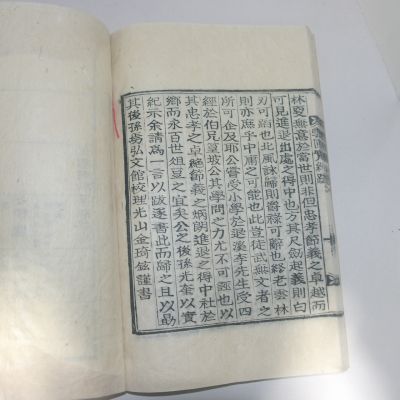 林夏無意於當世則非但忠孝節義之卓越而
可見進退出處之得中也方其尺劍起義則白
刃可蹈也北風詠歸則爵祿可辭也終老雲林
則亦庶乎中庸之可能也此豈徒武無文者之
所可企及耶公嘗受小學於退溪李先生受四
經於伯兄篁坡公其學問之力尤不可誣也以
其忠孝之卓絶節義之炳朗進退之得中社於
鄉而永百世俎豆之宜矣公之後孫光奎以實
紀示余請爲一言以跋遂書此而歸之且以勗
其後孫焉弘文館校理光山金琦鉉謹書